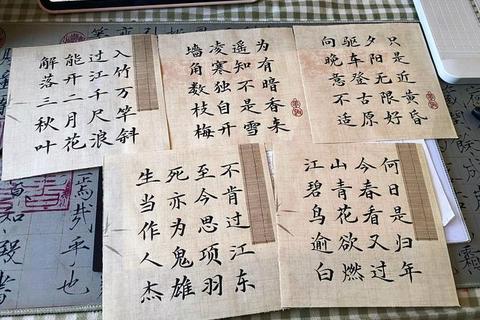 解落三秋叶
能开二月花
过江千尺浪
入竹万竿斜
墙角数枝梅
凌寒独自开
遥知不是雪
为有暗香来
向晚意不适
驱车登古原
夕阳无限好
只是近黄昏
生当作人杰
死亦为鬼雄
至今思项羽
不肯过江东
江碧鸟逾白
山青花欲燃
今春看又过
何日是归年
焉哉乎也